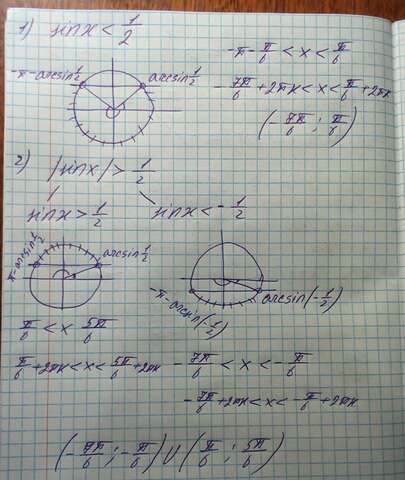 1) sinx < 1/2
-π - π/6 < x < π/6
-π-arcsin 1/2
arcsin 1/2
- 7π/6 + 2πk < x < π/6 + 2πk
(- 7π/6 ; π/6)
2) |sinx| > 1/2
sinx > 1/2
sinx < - 1/2
π-arcsin 1/2
arcsin 1/2
-π-arcsin(-1/2)
arcsin(-1/2)
π/6 < x < 5π/6
π/6 + 2πk < x < 5π/6 + 2πk
- 7π/6 < x < - π/6
- 7π/6 + 2πk < x < - π/6 + 2πk
(- 7π/6 ; - π/6) U (π/6 ; 5π/6)